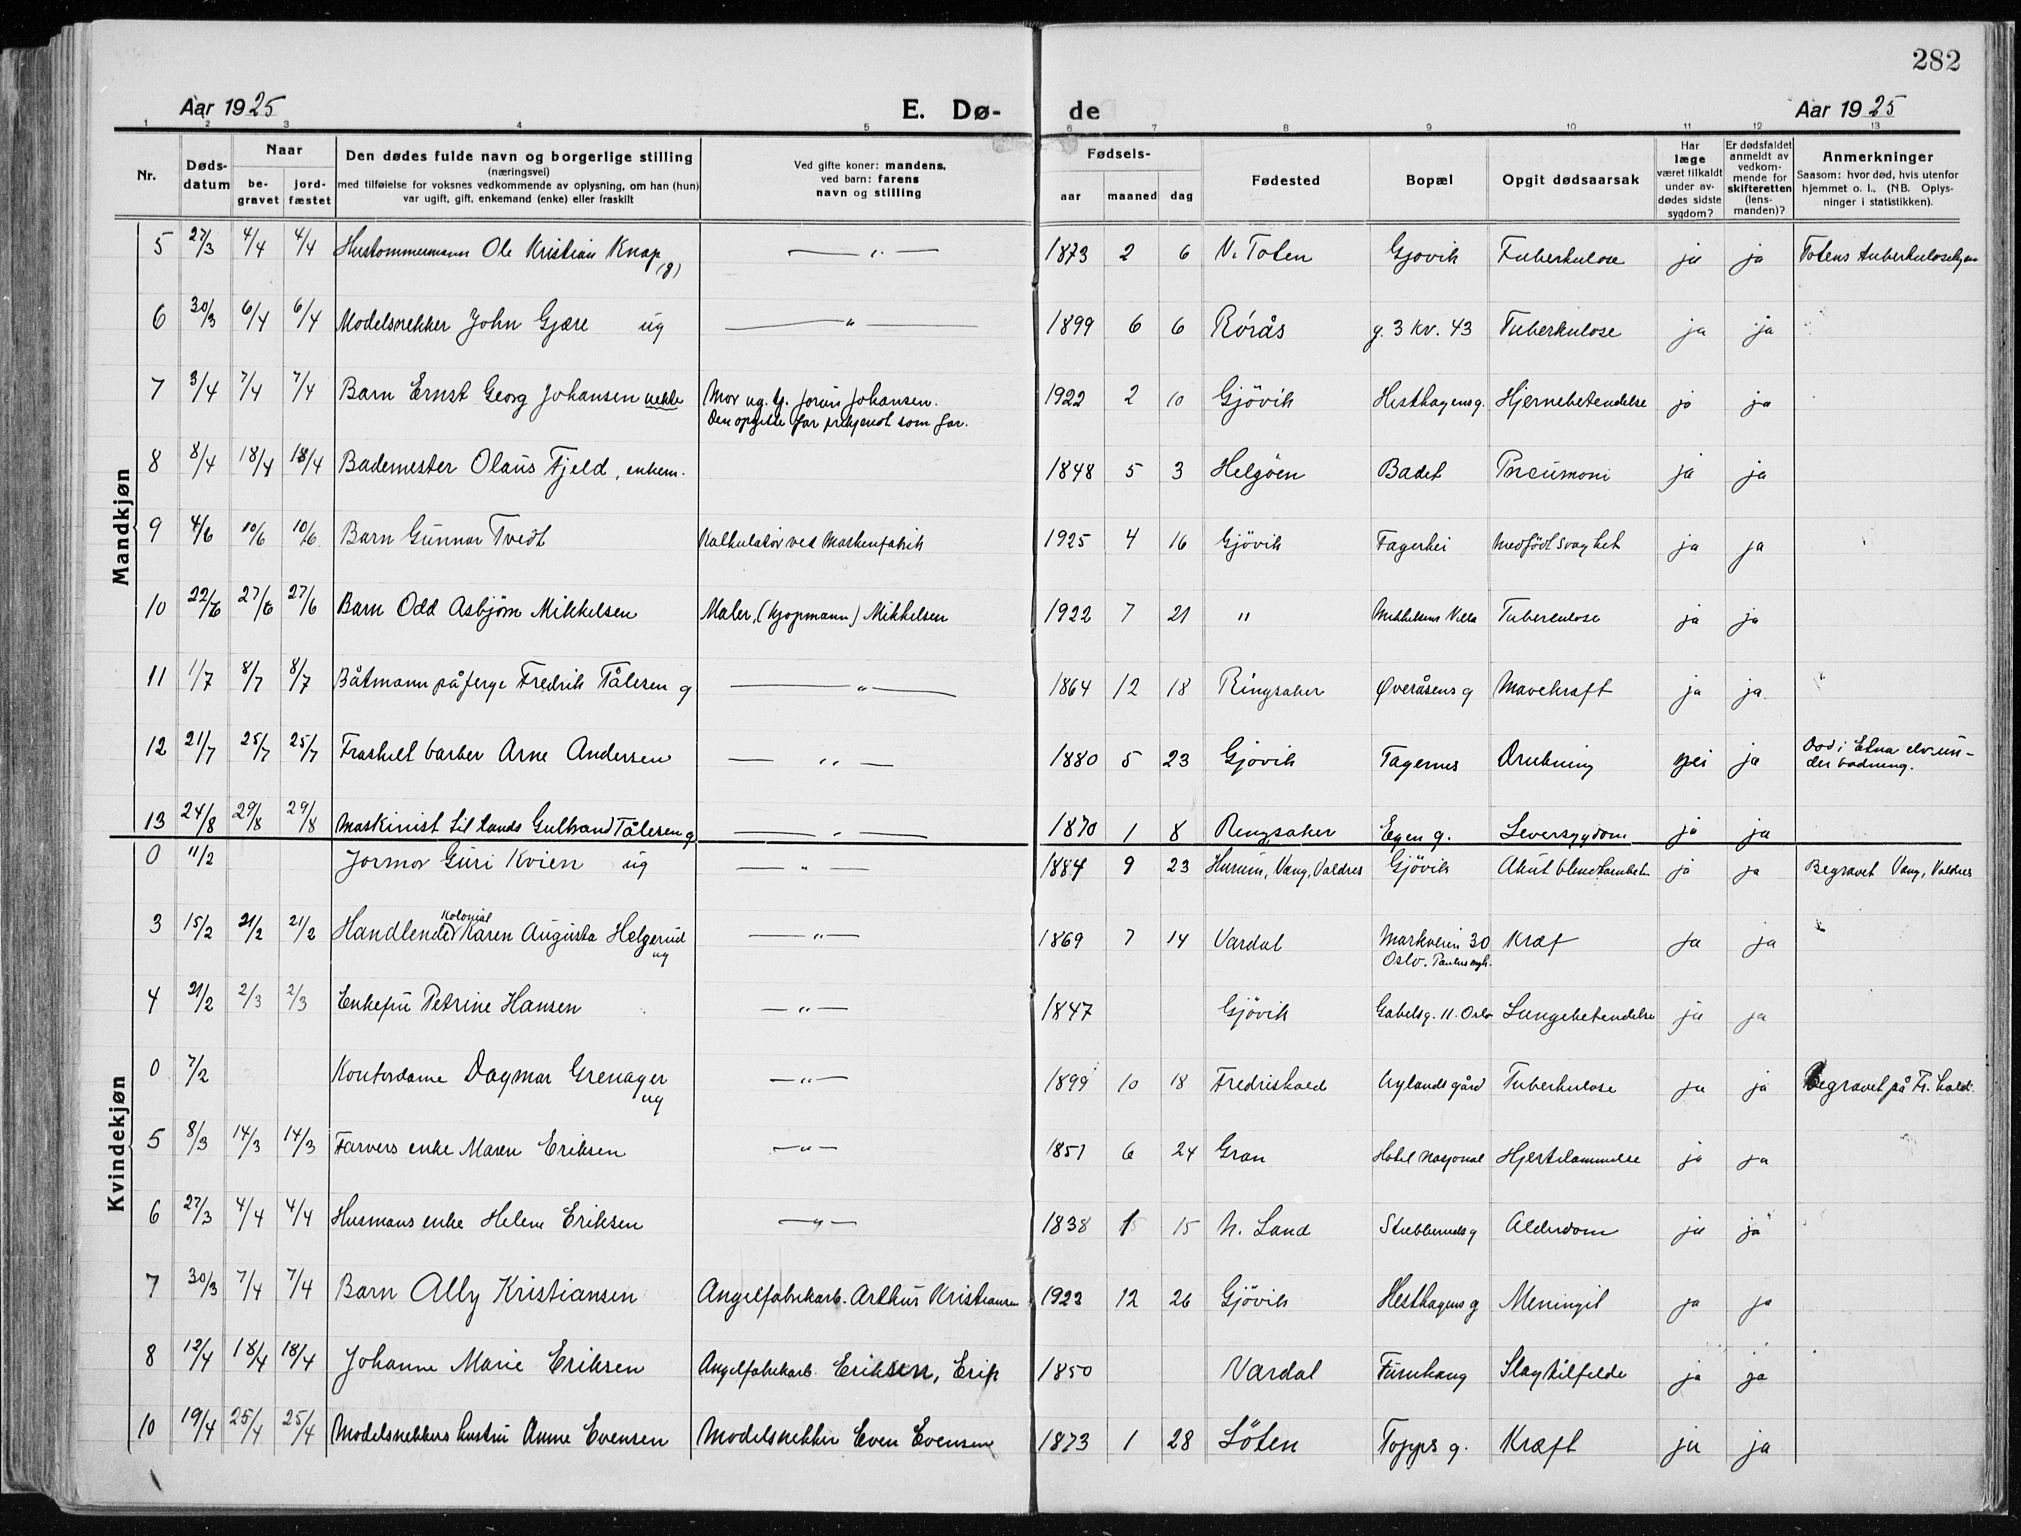 282
Aar 1925 E. Dø- de Aar 1925
1 2 3 4 5 6 7 8 9 10 11 12 13
Nr.
Døds-
datum
Naar
be-
gravet
jord-
fæstet
Den dødes fulde navn og borgerlige stilling
(næringsvei)
med tilføielse for voksnes vedkommende av oplysning, om han (hun)
var ugift, gift, enkemand (enke) eller fraskilt
Ved gifte koner: mandens,
ved barn: farens
navn og stilling
Fødsels-
aar maaned dag
Fødested
Bopæl
Opgit dødsaarsak
Har
læge
været tilkaldt
under av-
dødes sidste
sygdom?
Er dødsfaldet
anmeldt av
vedkom-
mende for
skifteretten
(lens-
manden)?
Anmerkninger
Saasom: hvor død, hvis utenfor
hjemmet o. l., (NB. Oplys-
ninger i statistikken).
Mandkjøn
5 27/3 4/4 4/4 Hustømmermann Ole Kristian Knap (g) — „ — 1873 2 6 V. Toten Gjøvik Tuberkulose ja ja Totens tuberkulosehjem
6 30/3 6/4 6/4 Modelsnekker John Gjære ug — „ — 1899 6 6 Rørås g. 3 kv. 43 Tuberkulose ja ja
7 3/4 7/4 7/4 Barn Ernst Georg Johansen uekte Mor ug. Jorun Johansen. 1922 2 10 Gjövik Hesthagensg. Hjernebetendelse ja ja
Den opgitte far erkjendt som far.
8 8/4 18/4 18/4 Bademester Olaus Fjeld, enkem. 1848 5 3 Helgöen Badet Pneumoni ja ja
9 4/6 10/6 10/6 Barn Gunnar Tvedt Kalkulatör ved Maskenfabrik 1925 4 16 Gjövik Fagerhei Medfödt svaghet ja ja
10 22/6 27/6 27/6 Barn Odd Asbjørn Mikkelsen Maler, (kjøpmann) Mikkelsen 1922 7 21 " Mikkelsens Villa Tuberculose ja ja
11 1/7 8/7 8/7 Båtmann på ferge Fredrik Tålesen g — „ — 1864 12 18 Ringsaker Øveråsens g Mavekraft ja ja
12 21/7 25/7 25/7 Fraskilt barber Arne Andersen — „ — 1880 5 23 Gjövik Fagernes Drukning nei ja Död i Etna elv un-
der badning.
13 24/8 29/8 29/8 Maskinist til lands Gulbrand Tålesen g — „ — 1870 1 8 Ringsaker Egen g. Leversygdom ja ja
Kvindekjøn
0 11/2 Jormor Guri Kvien ug — „ — 1884 9 23 Hurum, Vang, Valdres Gjövik Akut blindtarmbet. ja ja Begravet Vang, Valdres
3 15/2 21/2 21/2 Handlende Kolonial Karen Augusta Helgerud ug — „ — 1869 7 14 Vardal Markveien 30 Kræf ja ja
Oslo.
4 21/2 2/3 2/3 Enkefru Petrine Hansen — „ — 1847 Gjövik Gabelsg. 11. Oslo Lungebetendelse ja ja
0 7/2 Kontordame Dagmar Grenager ug — „ — 1899 10 18 Fredrikshald Nylands gård Tuberkulose ja ja Begravet på Fr. hald.
5 8/3 14/3 14/3 Farvers enke Maren Eriksen — „ — 1851 6 24 Gran Hotel Nasjonal Hjertelammelse ja ja
6 27/3 4/4 4/4 Husmans enke Helene Eriksen — „ — 1838 1 15 N. Land Stubberuds g Alderdom ja ja
7 30/3 7/4 7/4 Barn Ally Kristiansen Angelfabrikarb. Arthur Kristiansen 1923 12 26 Gjövik Hesthagens g Meningit ja ja
8 12/4 18/4 18/4 Johanne Marie Eriksen Angelfabrikarb. Eriksen, Erik 1850 Vardal Furuhaug Slagtilfelde ja ja
10 19/4 25/4 25/4 Modelsnekkers hustru Anne Evensen Modelsnekker Even Evensen 1873 1 28 Löten Topps g. Kræft ja ja